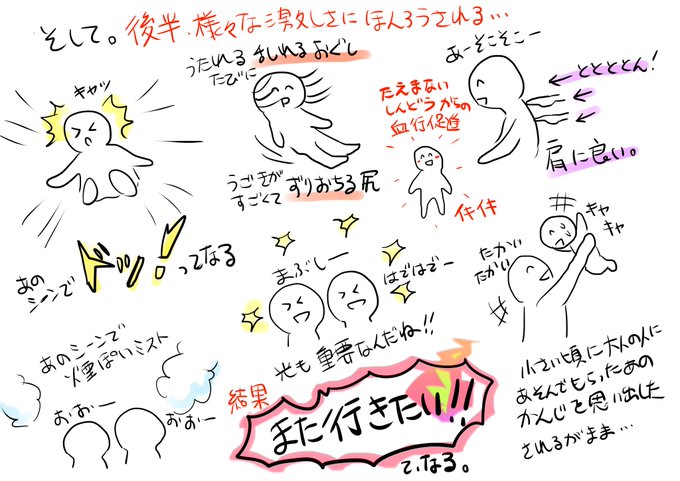 そして。後半、様々な激しさにほんろうされる…
キャッ
うたれる乱れるおぐし
たびに
あーそこそこー
←ととととん!
たえまない
しんどうからの
血行促進
イキイキ
肩に良い。
うごきが
すごくてずりおちる尻
あの
シーンで
ドッ!ってなる
まぶしー
はではでー
光も重要なんだね!!
たかい
たかい
キャ
キャ
小さい頃に大人の人に
あそんでもらったあの
かんじを思い出した
されるがまま…
あのシーンで
煙ぽいミスト
お、おー
おぉー
結果
また行きたい!!
てなる。